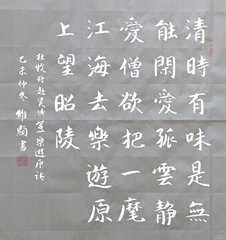 清時有味是無
能閑愛孤雲靜
愛僧欲把一麾
江海去樂遊原
上望昭陵
杜牧將赴吳興登樂遊原詩
乙未仲冬 書